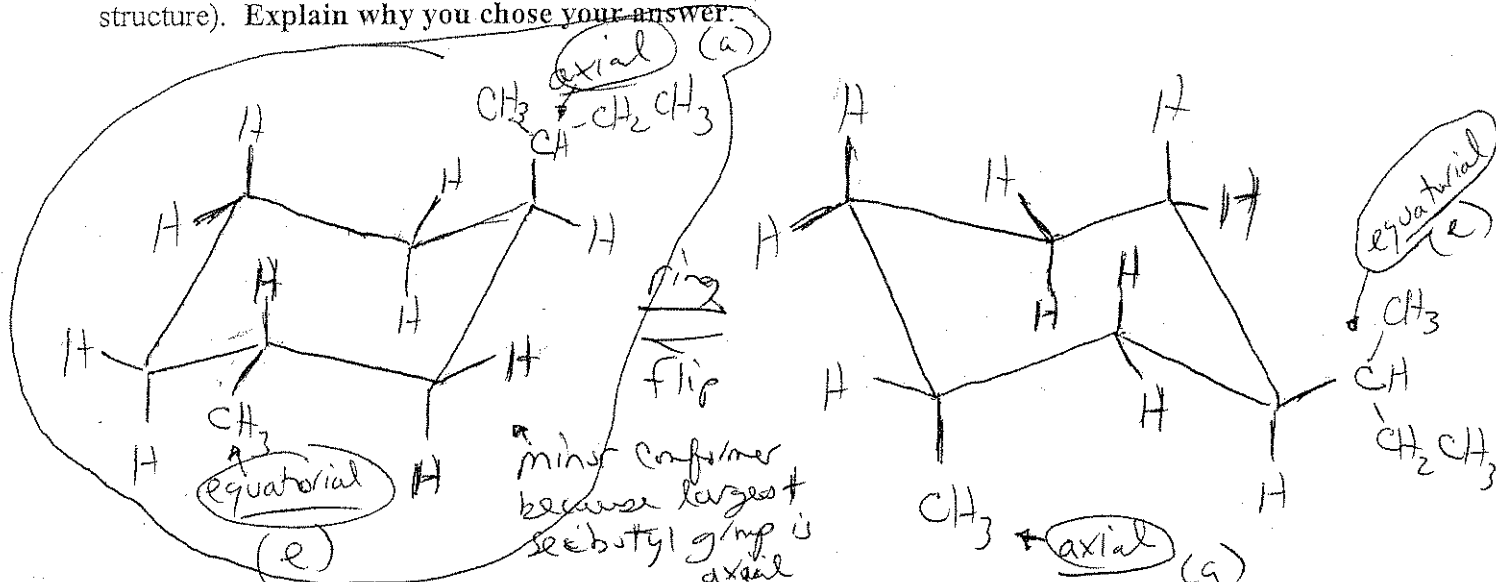 structure). Explain why you chose your answer.
axial (a)
CH3 CH -CH2 CH3
H
H
H
H
H
H
H
H
H
CH3
H
H
H
equatorial
(e)
ring
flip
minor conformer
because largest
secbutyl group is
axial
H
H
H
H
H
H
H
H
H
H
CH3
axial (a)
equatorial
(e)
CH3
CH
CH2 CH3